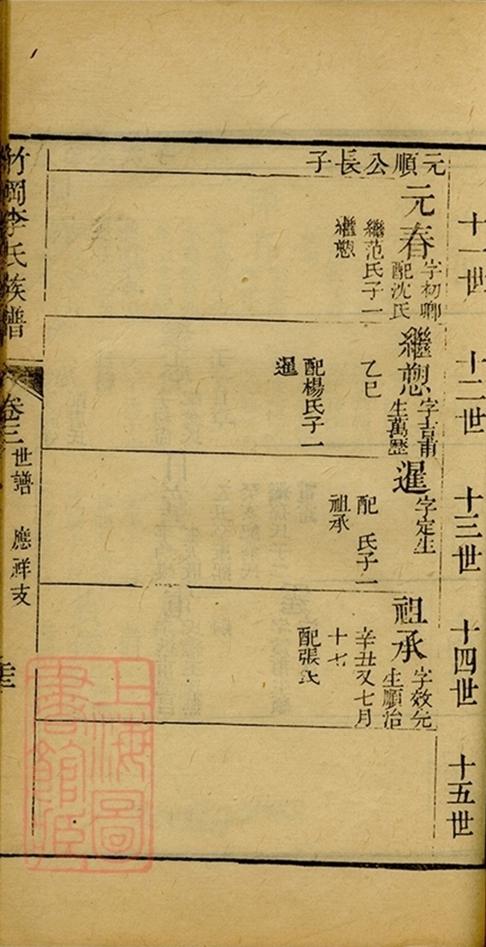 十一世
十二世
十三世
十四世
十五世
元順公長子
元春
字初卿
配沈氏
繼范氏子一
繼愬
繼愬
字吉甫
生萬歷
乙巳
配楊氏子一
暹
暹
字定生
配 氏子一
祖承
祖承
字效先
生順治
辛丑又七月
十七
配張氏
竹岡李氏族譜
卷三
世譜
應祥支
上海圖書館藏